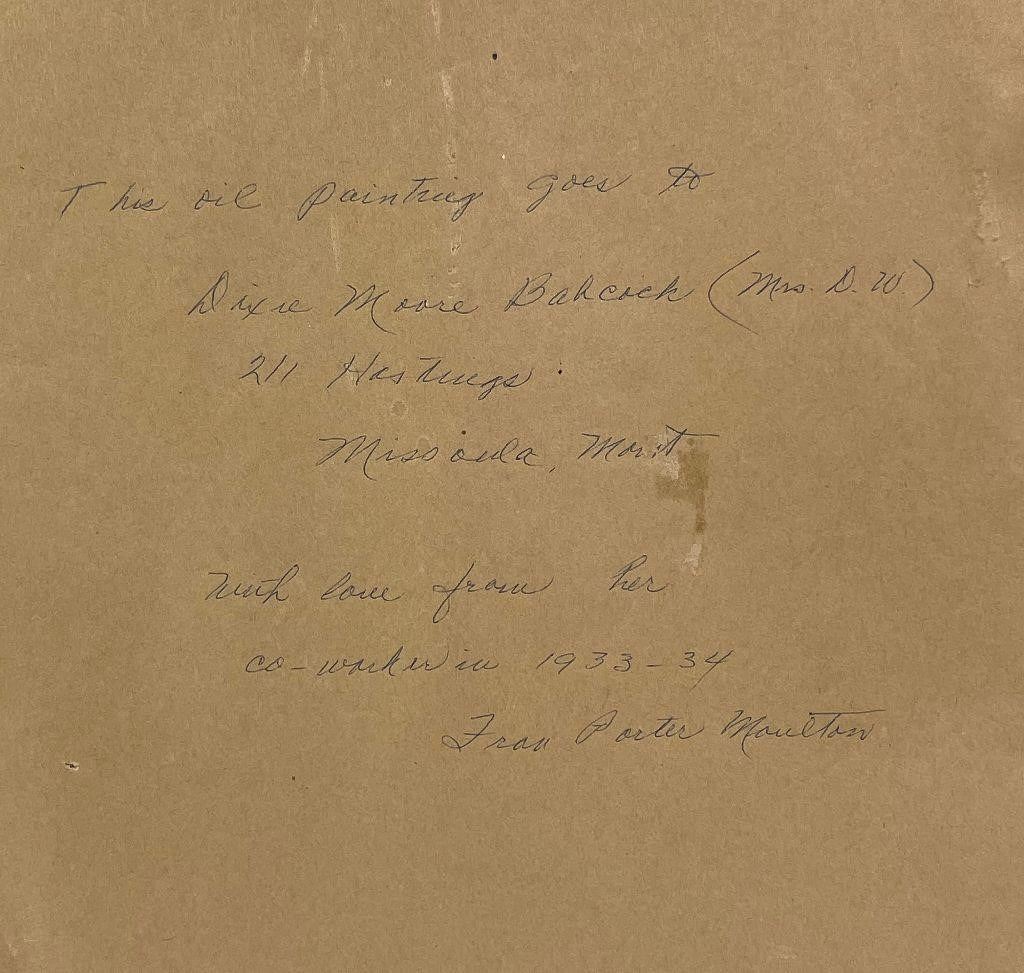 This oil painting goes to
Dixie Moore Babcock (Mrs. D. W.)
211 Hastings
Missoula, Mont
with love from her
co-worker in 1933-34
Fran Porter Moulton